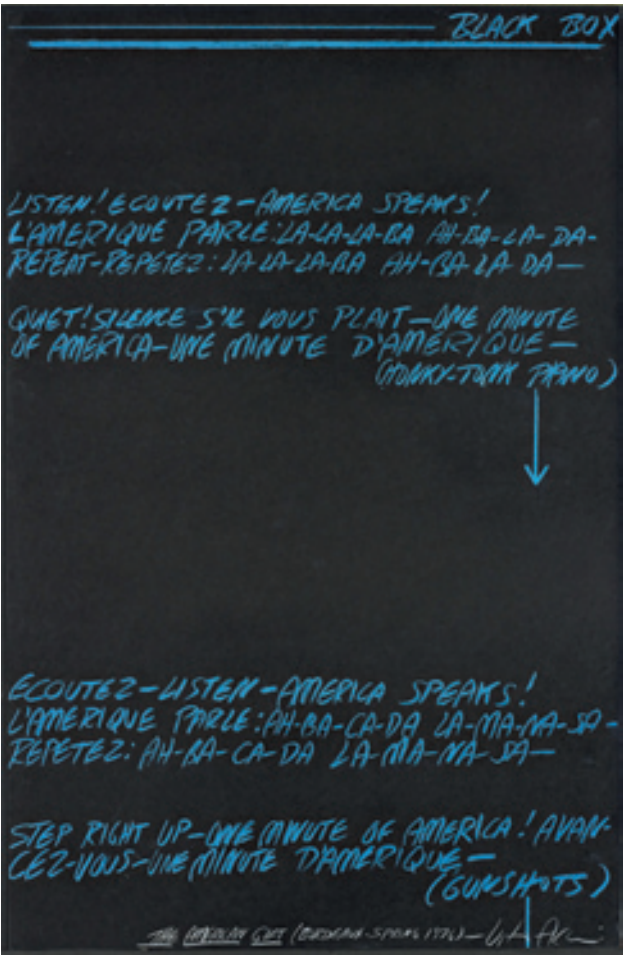 BLACK BOX
LISTEN! ECOUTEZ—AMERICA SPEAKS!
L'AMERIQUE PARLE: LA-LA-LA-BA AH-BA-LA-DA-
REPEAT-REPETEZ: LA-LA-LA-BA AH-BA-LA-DA—
QUIET! SILENCE S'IL VOUS PLAIT—ONE MINUTE
OF AMERICA-UNE MINUTE D'AMERIQUE—
(HONKY-TONK PIANO)
ECOUTEZ-LISTEN-AMERICA SPEAKS!
L'AMERIQUE PARLE: AH-BA-CA-DA LA-MA-NA-SA-
REPETEZ: AH-BA-CA-DA LA-MA-NA-SA—
STEP RIGHT UP-ONE MINUTE OF AMERICA! AVAN-
CEZ-VOUS-UNE MINUTE D'AMERIQUE—
(GUNSHOTS)
THE AMERICAN GIFT (BORDEAUX-SPRING 1976)—